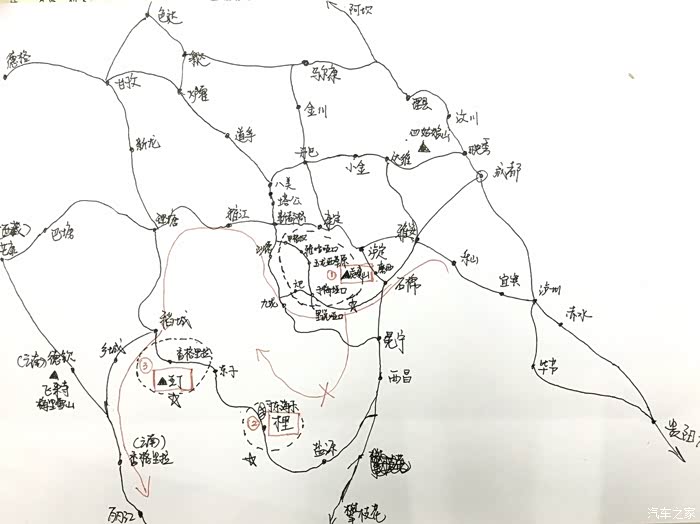 阿坝
色达
德格
甘孜
炉霍
马尔康
理县
汶川
金川
道孚
新龙
四姑娘山
丹巴
小金
映秀
成都
八美
塔公
新都桥
康定
雅江
理塘
巴塘
(西藏)
泸定
雅安
乐山
宜宾
泸州
赤水
毕节
贵阳
石棉
①
九龙
冕宁
西昌
稻城
乡城
香格里拉
③
亚丁
东子
(云南)德钦
飞来寺
梅里雪山
②
盐源
(云南)
香格里拉
丽江
攀枝花
汽车之家